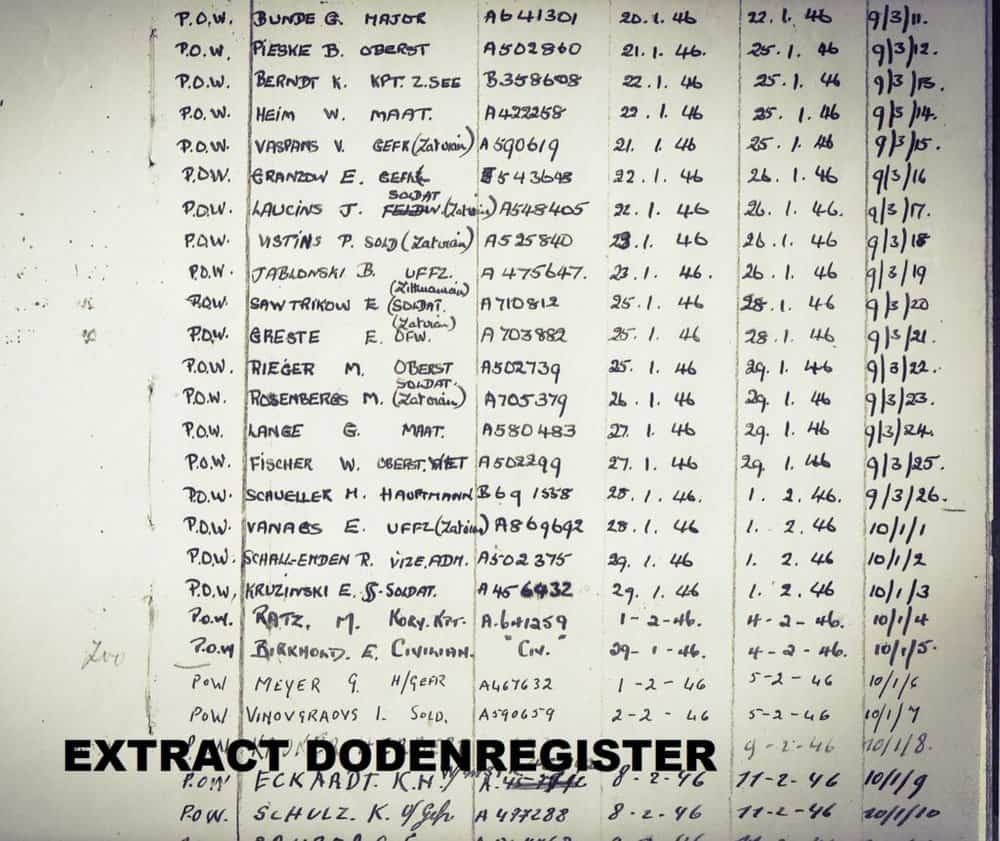 P.O.W. BUNDE G. MAJOR A641301 20.1.46 22.1.46 9/3/11.
P.O.W. PIESKE B. OBERST A502860 21.1.46. 25.1.46 9/3/12.
P.O.W. BERNDT K. KPT. Z. SEE B358608 22.1.46 25.1.46 9/3/13.
P.O.W. HEIM W. MAAT. A422258 22.1.46 25.1.46 9/3/14.
P.O.W. VASPANS V. GEFR (Latvian) A590619 21.1.46 25.1.46 9/3/15.
P.O.W. GRANZOW E. GEFR 543698 22.1.46 26.1.46 9/3/16
SOLDAT
P.O.W. LAUCINS J. (Latvian) A548405 22.1.46 26.1.46. 9/3/17.
P.O.W. VISTINS P. SOLD (Latvian) A525840 23.1.46 26.1.46 9/3/18
P.O.W. JABLONSKI B. UFFZ. A475647. 23.1.46. 26.1.46 9/3/19
P.O.W. SAWTRIKOW E (SOLDAT. A710812 25.1.46 28.1.46 9/3/20
(Latvian)
P.O.W. GRESTE E. OFW. A703882 25.1.46 28.1.46 9/3/21.
P.O.W. RIEGER M. OBERST A502739 25.1.46 29.1.46 9/3/22.
SOLDAT.
P.O.W. ROSENBERGS M. (Latvian) A705379 26.1.46 29.1.46 9/3/23.
P.O.W. LANGE G. MAAT. A580483 27.1.46 29.1.46 9/3/24.
P.O.W. FISCHER W. OBERST. A502299 27.1.46 29.1.46 9/3/25.
P.O.W. SCHUELLER H. HAUPTMANN B691558 28.1.46. 1.2.46. 9/3/26.
P.O.W. VANAGS E. UFFZ (Latvian) A869692 28.1.46 1.2.46 10/1/1
P.O.W. SCHALL-EMDEN R. VIZE. ADM. A502375 29.1.46 1.2.46 10/1/2
P.O.W. KRUZINSKI E. SS-SOLDAT. A456932 29.1.46 1.2.46 10/1/3
P.O.W. RATZ, M. KORV. KPT. A.641259 1-2-46. 4-2-46. 10/1/4
P.O.W BIRKHOLD. E. CIVILIAN. "CIV." 29-1-46. 4-2-46. 10/1/5.
POW MEYER G. H/GEFR A467632 1-2-46 5-2-46 10/1/6
POW VINOVGRAOVS I. SOLD. A590659 2-2-46 5-2-46 10/1/7
9-2-46 10/1/8.
EXTRACT DODENREGISTER
P.O.W ECKARDT. K.H. 8-2-46 11-2-46 10/1/9
POW. SCHULZ. K. O/Gefr A497288 8-2-46 11-2-46 10/1/10